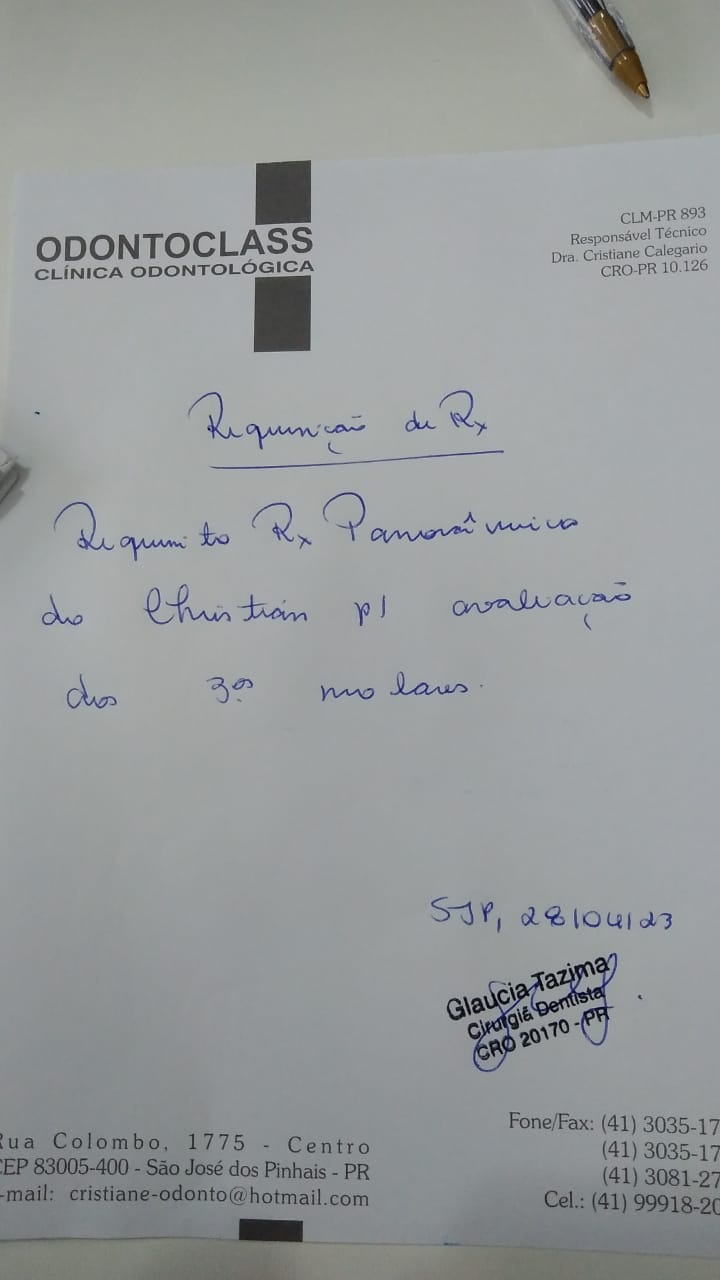 ODONTOCLASS
CLÍNICA ODONTOLÓGICA
CLM-PR 893
Responsável Técnico
Dra. Cristiane Calegario
CRO-PR 10.126
Requisição de Rx
Requisito Rx Panorâmico
do Christian p/ avaliação
dos 3ºs molares.
SJP, 28/04/23
Glaucia Tazima
Cirurgiã Dentista
CRO 20170 - PR
Rua Colombo, 1775 - Centro
CEP 83005-400 - São José dos Pinhais - PR
e-mail: cristiane-odonto@hotmail.com
Fone/Fax: (41) 3035-17
(41) 3035-17
(41) 3081-27
Cel.: (41) 99918-20